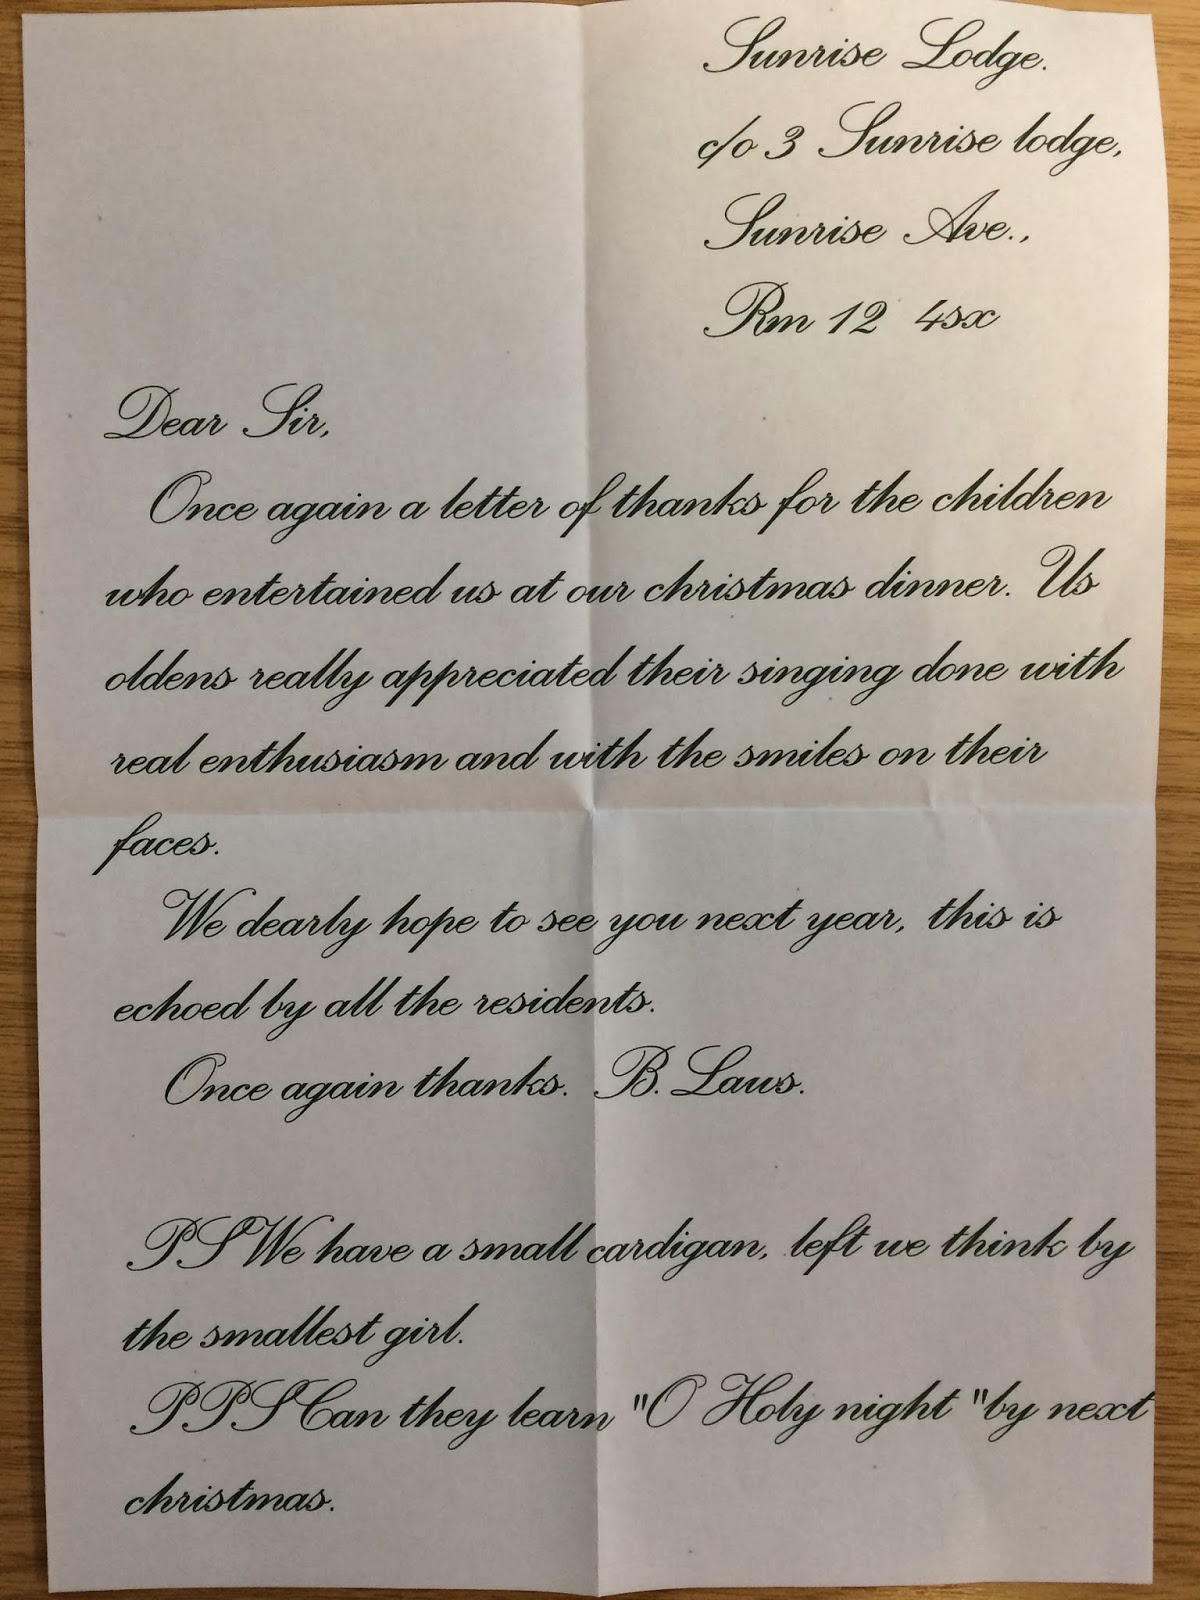 Sunrise Lodge.
c/o 3 Sunrise lodge,
Sunrise Ave.,
Rm 12 4sx
Dear Sir,
Once again a letter of thanks for the children
who entertained us at our christmas dinner. Us
oldens really appreciated their singing done with
real enthusiasm and with the smiles on their
faces.
We dearly hope to see you next year, this is
echoed by all the residents.
Once again thanks. B. Laws.
PS We have a small cardigan, left we think by
the smallest girl.
PPS Can they learn "O Holy night "by next
christmas.